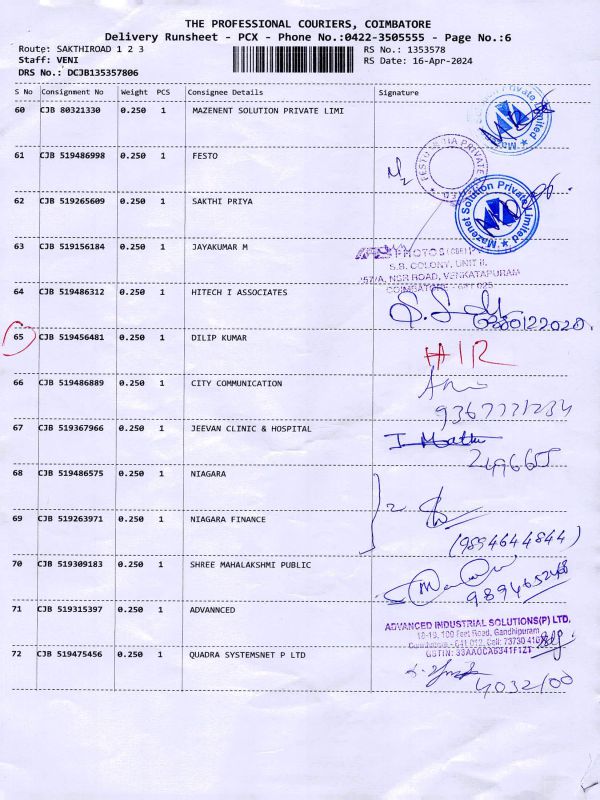 THE PROFESSIONAL COURIERS, COIMBATORE
Delivery Runsheet - PCX - Phone No.:0422-3505555 - Page No.:6
Route: SAKTHIROAD 1 2 3 RS No.: 1353578
Staff: VENI RS Date: 16-Apr-2024
DRS No.: DCJB135357806
S No Consignment No Weight PCS Consignee Details Signature
60 CJB 80321330 0.250 1 MAZENENT SOLUTION PRIVATE LIMI
Mazenet Solution Private Limited
61 CJB 519486998 0.250 1 FESTO
FESTO INDIA PRIVATE
62 CJB 519265609 0.250 1 SAKTHI PRIYA
Mazenet Solution Private Limited
63 CJB 519156184 0.250 1 JAYAKUMAR M
PHOTOS
S.B. COLONY, UNIT II,
NSR ROAD, VENKATAPURAM
COIMBATORE
64 CJB 519486312 0.250 1 HITECH I ASSOCIATES
65 CJB 519456481 0.250 1 DILIP KUMAR
66 CJB 519486889 0.250 1 CITY COMMUNICATION
67 CJB 519367966 0.250 1 JEEVAN CLINIC & HOSPITAL
2496655
68 CJB 519486575 0.250 1 NIAGARA
2
69 CJB 519263971 0.250 1 NIAGARA FINANCE
(9894644844)
70 CJB 519309183 0.250 1 SHREE MAHALAKSHMI PUBLIC
71 CJB 519315397 0.250 1 ADVANNCED
ADVANCED INDUSTRIAL SOLUTIONS(P) LTD.
100 Feet Road, Gandhipuram
72 CJB 519475456 0.250 1 QUADRA SYSTEMSNET P LTD
4032100